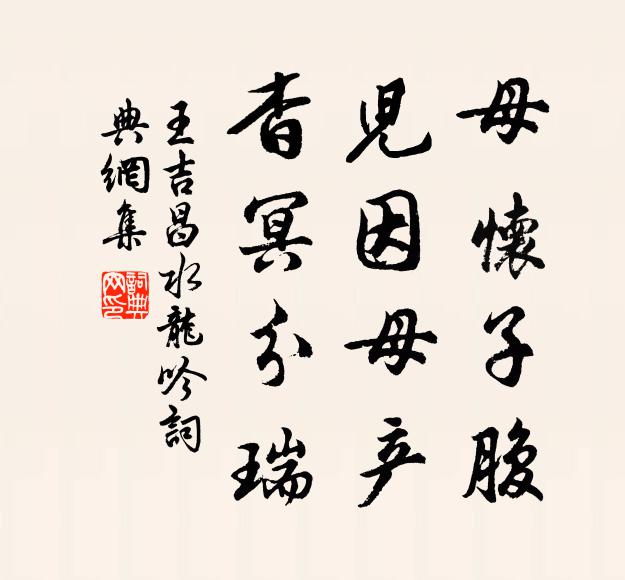 母懷子腹
兒因母产
杳冥分瑞
王吉昌水龍吟詞
典網集
詞典
网印